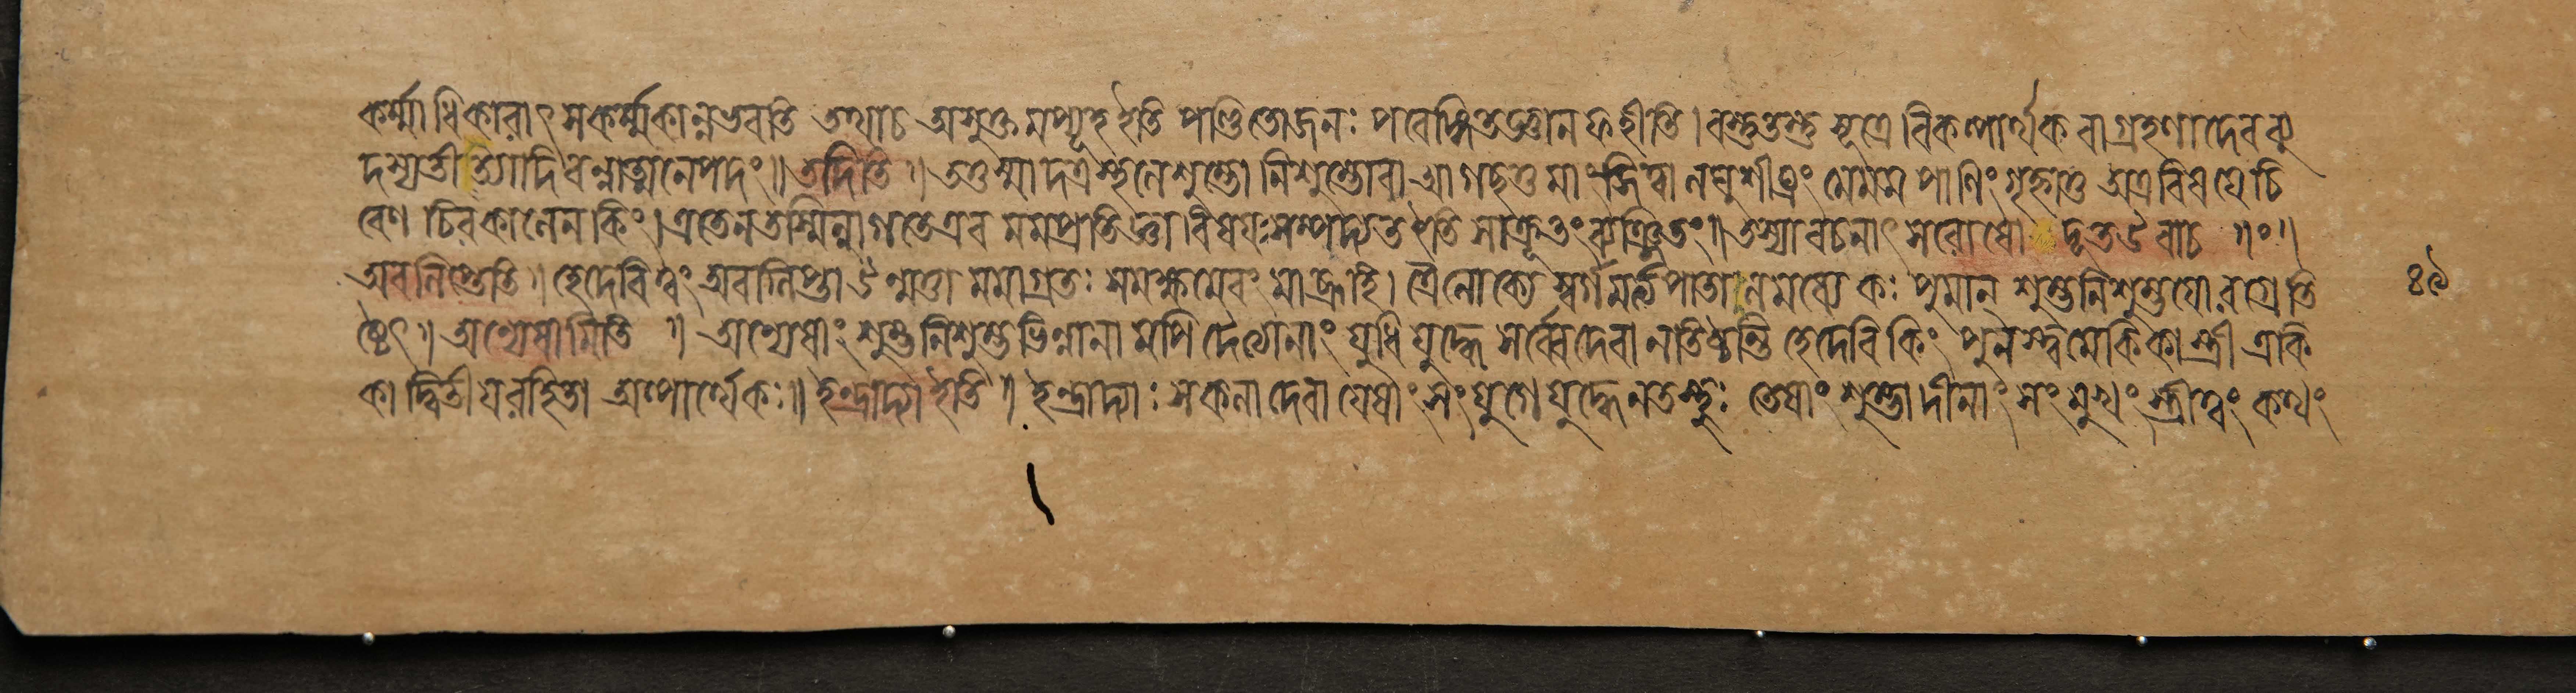 কর্ম্মাধিকারাৎ সকর্ম্মকান্নভবতি তথাচ অনুক্তমপ্যূহইতি পণ্ডিতোজনঃ পরেঙ্গিতজ্ঞান ফলীতি। বস্তুতস্তু সূত্রে বিকল্পার্থক বাগ্রহণাদেবব্যু
দস্যতীত্যাদিবন্নাত্মনেপদং॥ তদিতি॥ তত্তস্মাদত্রস্থনে শুম্ভো নিশুম্ভোবা আগচ্ছতু মাং জিত্বা লঘুশীঘ্রং মেমম পাণিং গৃহ্লাতু অত্রবিষয়ে চি
রেণ চিরকালেন কিং। এতেনতস্মিন্নাগতেএব মমপ্রতিজ্ঞা বিষয়ঃ সম্পদ্যত ইতি সাকূতং ব্যঞ্জিতং॥ তস্যাবচনাৎ সরোষো দূতউবাচ॥ঃ॥
অবলিপ্তেতি॥ হেদেবিত্বং অবলিপ্তা উন্মত্তা মমাগ্রতঃ মমক্ষমেবং মাব্রূহি। ত্রৈলোক্যে স্বর্গমর্ত্যপাতালমধ্যে কঃ পুমান্ শুম্ভনিশুম্ভয়োরগ্রেতি ৪৯
ষ্ঠেৎ॥ অন্যেষামিতি॥ অন্যেষাং শুম্ভনিশুম্ভভিন্নানামপি দৈত্যানাং যুধি যুদ্ধে সর্ব্বেদেবা নতিষ্ঠন্তি হেদেবি কিং পুনস্ত্বমেকিকা স্ত্রী একি
কা দ্বিতীয়রহিতা অল্পার্থেকঃ॥ ইন্দ্রাদ্যা ইতি॥ ইন্দ্রাদ্যাঃ সকলাদেবা যেষাং সংযুগে যুদ্ধেনতস্থুঃ তেষাং শুম্ভাদীনাং সংমুখং স্ত্রীত্বং কথং